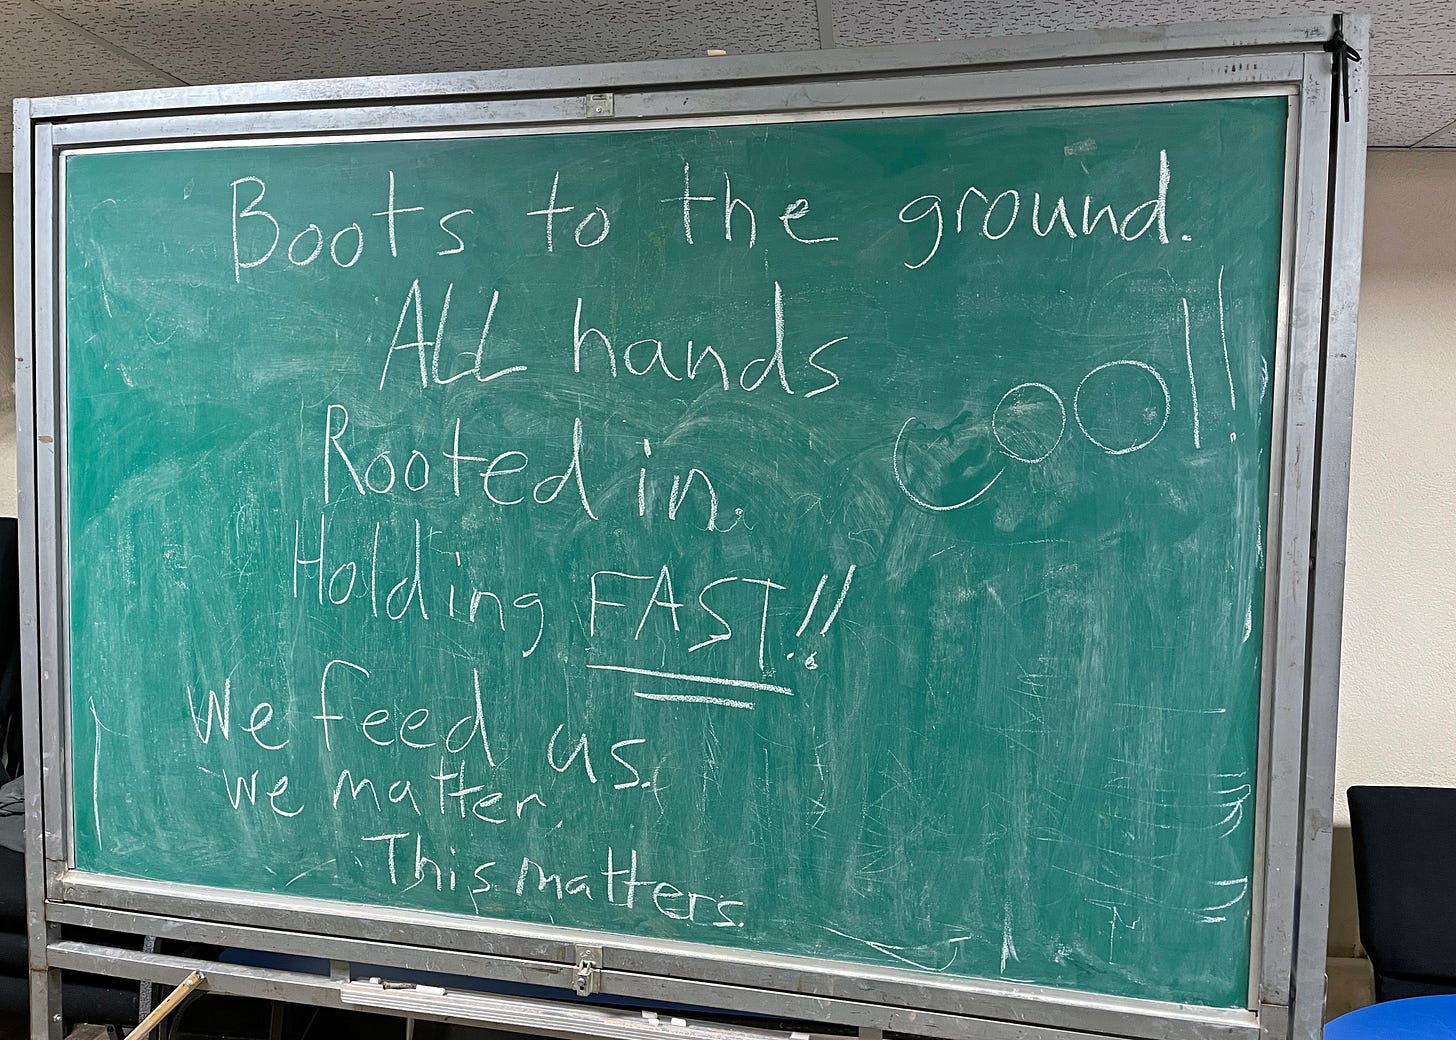 Boots to the ground.
ALL hands
Rooted in.
Holding FAST!!
We feed us.
We matter.
This matters.
Cool!